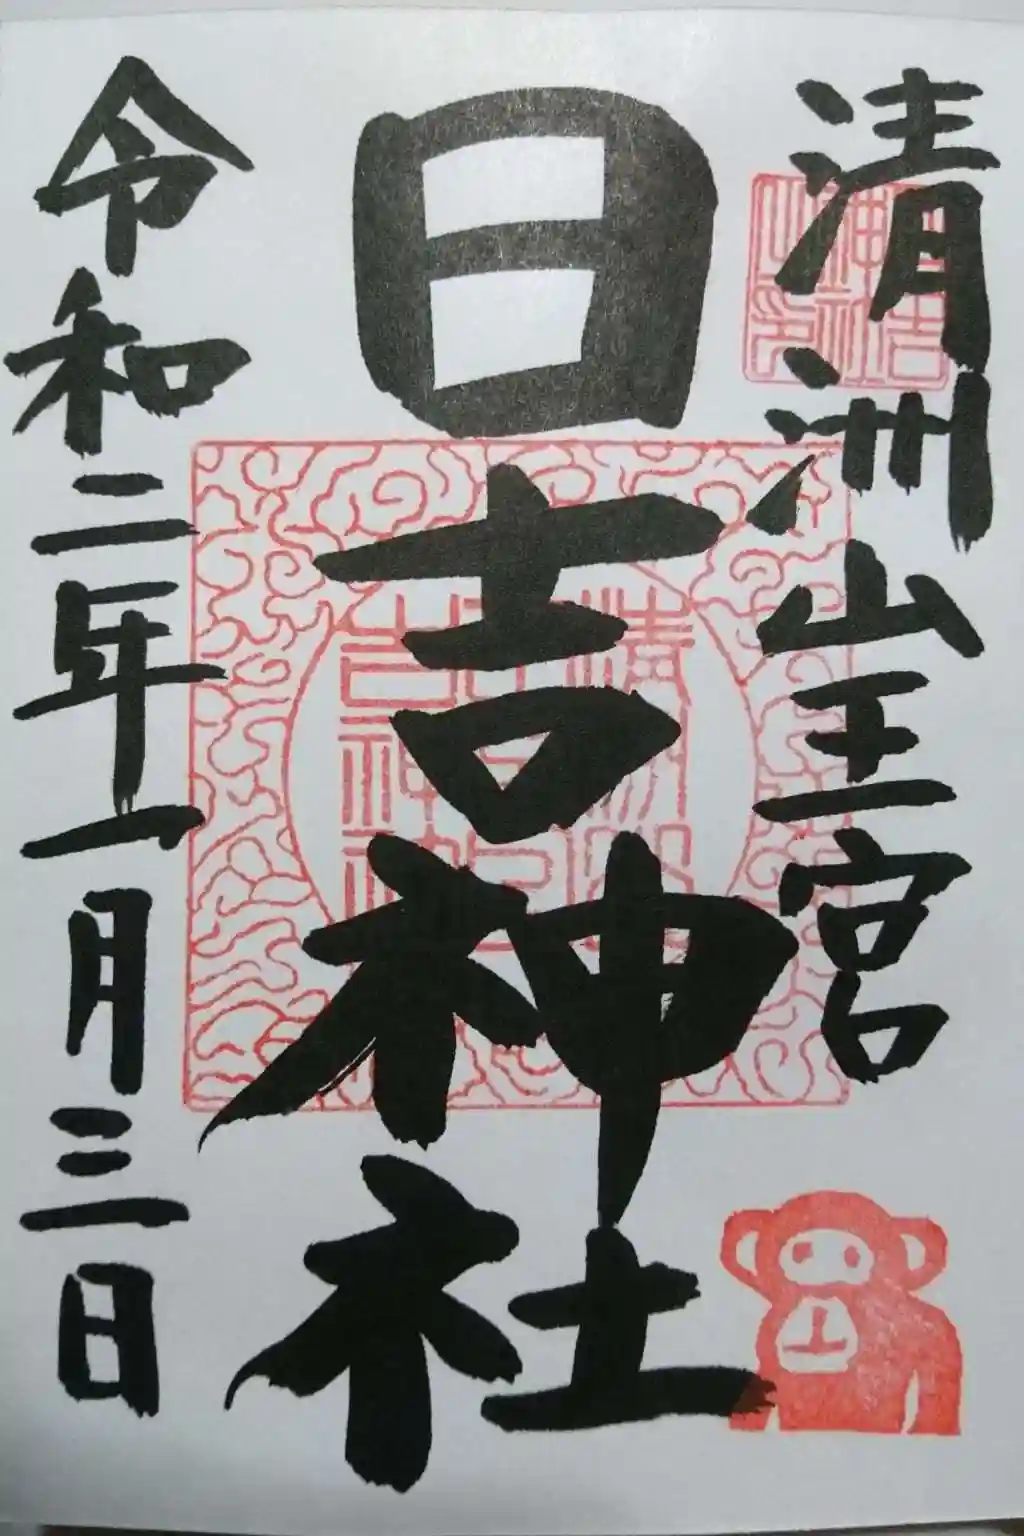 清洲山王宮
日吉神社
令和二年一月三日